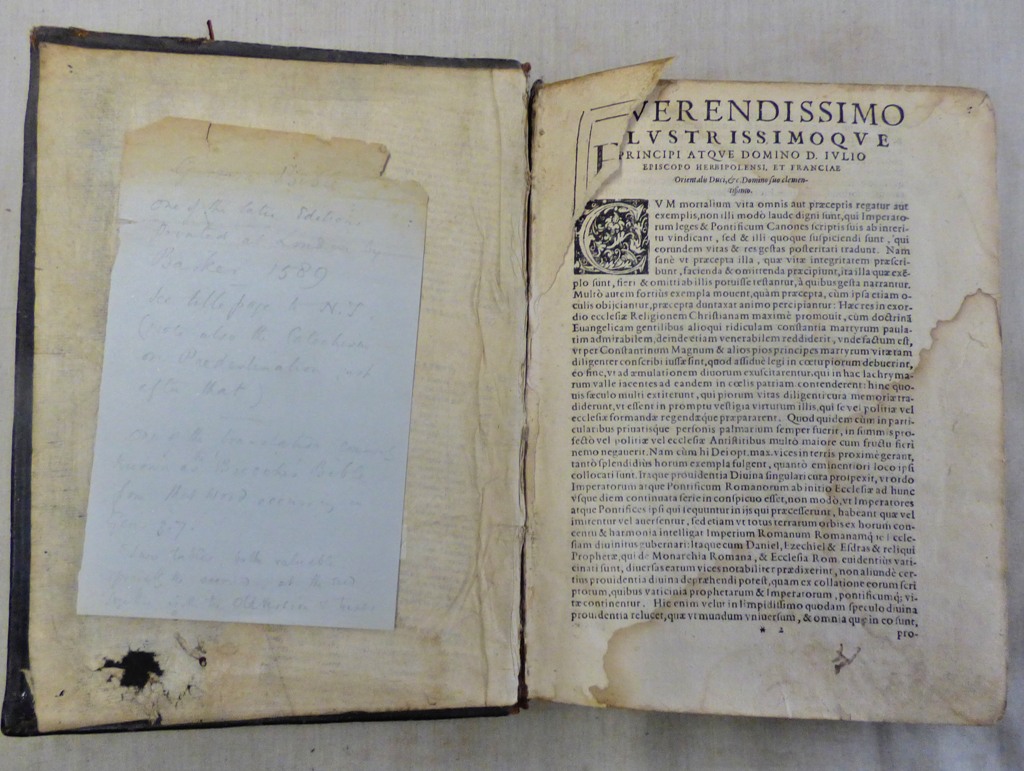 one of the later Editions
Printed at London
Barker 1589
See title page to N.T
(note also the Catechism
on Predestination,
after that)
known as Breeches Bible
from that word occurring in
3.7
VERENDISSIMO
LVSTRISSIMOQVE
PRINCIPI ATQVE DOMINO D. IVLIO
EPISCOPO HERBIPOLENSI, ET FRANCIAE
Orientalis Duci, &c. Domino suo clemen-
tissimo.
CVM mortalium vita omnis aut præceptis regatur aut
exemplis, non illi modò laude digni sunt, qui Imperato-
rum leges & Pontificum Canones scriptis suis ab interi-
tu vindicant, sed & illi quoque suspiciendi sunt, qui
eorundem vitas & res gestas posteritati tradunt. Nam
sanè vt præcepta illa, quæ vitæ integritatem præscri-
bunt, facienda & omittenda præcipiunt, ita illa quæ exē-
plo sunt, fieri & omitti ab illis potuisse testantur, à quibus gesta narrantur.
Multò autem fortius exempla mouent, quàm præcepta, cùm ipsa etiam o-
culis obijciantur, præcepta duntaxat animo percipiantur: Hæc res in exor-
dio ecclesiæ Religionem Christianam maximè promouit, cùm doctrinā
Euangelicam gentilibus alioqui ridiculam constantia martyrum paula-
tim admirabilem, deinde etiam venerabilem reddiderit, vnde factum est,
vt per Constantinum Magnum & alios pios principes martyrum vitæ tam
diligenter conscribi iussæ sint, quod assiduè legi in cœtu piorum debuerint,
eo fine, vt ad æmulationem diuorum exuscitarentur, qui in hac lachryma-
rum valle iacentes ad eandem in cœlis patriam contenderent: hinc quo-
uis sæculo multi extiterunt, qui piorum vitas diligenti cura memoriæ tra-
diderunt, vt essent in promptu vestigia virtutum illis, qui se vel politiæ vel
ecclesiæ formandæ regendæque præpararent. Quod quidem cùm in parti-
cularibus priuatisque personis palmarium semper fuerit, in summis pro-
fectò vel politiæ vel ecclesiæ Antistitibus multò maiore cum fructu fieri
nemo negauerit. Nam cùm hi Dei opt. max. vices in terris proximè gerant,
tantò splendidiùs horum exempla fulgent, quantò eminentiori loco ipsi
collocati sunt. Itaque prouidentia Diuina singulari cura prospexit, vt ordo
Imperatorum atque Pontificum Romanorum ab initio Ecclesiæ ad hunc
vsque diem continuata serie in conspicuo esset, non modò, vt Imperatores
atque Pontifices ipsi qui sequuntur in ijs qui præcesserunt, habeant quæ vel
imitentur vel auersentur, sed etiam vt totus terrarum orbis ex horum con-
centu & harmonia intelligat Imperium Romanum Romanamque Eccle-
siam diuinitus gubernari: Itaque cum Daniel, Ezechiel & Esdras & reliqui
Prophetæ, qui de Monarchia Romana, & Ecclesia Rom. euidentius vati-
cinati sunt, diuersas earum vices notabiliter prædixerint, non aliunde cer-
tius prouidentia diuina deprehendi potest, quam ex collatione eorum scri
ptorum, quibus vaticinia prophetarum & Imperatorum, pontificumq; vi-
tæ continentur. Hic enim velut in limpidissimo quodam speculo diuina
prouidentia relucet, quæ vt mundum vniuersum, & omnia quæ in eo sunt,
* 2
pro-